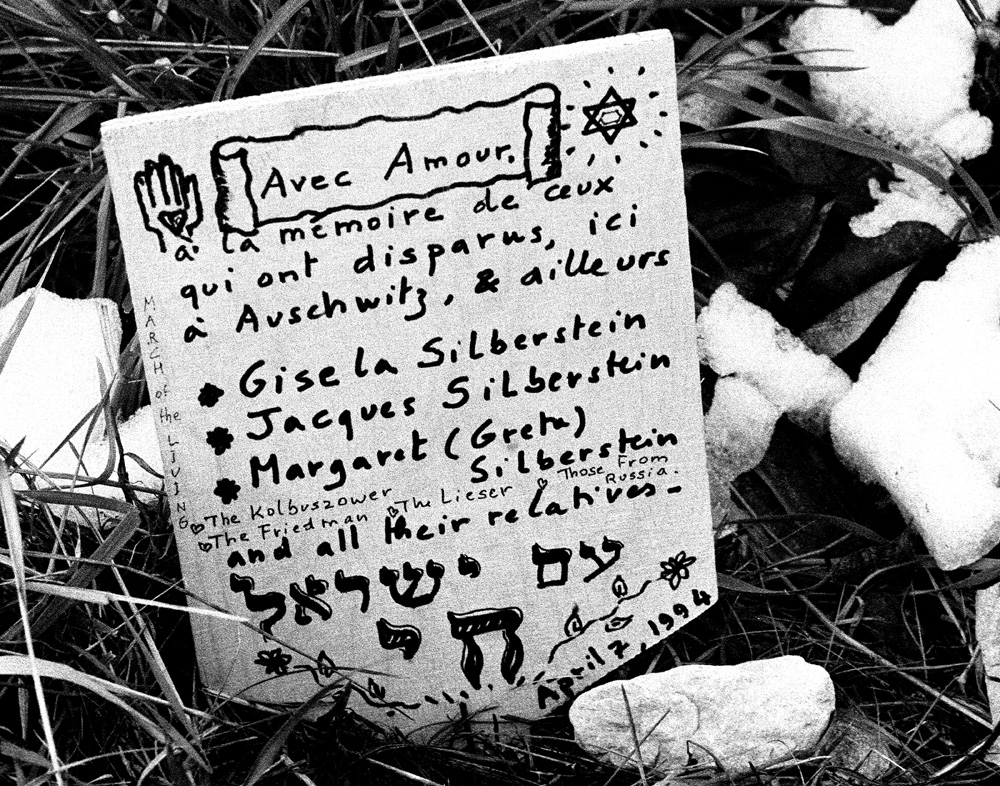 Avec Amour.
à la mémoire de ceux
qui ont disparus, ici
à Auschwitz, & ailleurs
Gisela Silberstein
Jacques Silberstein
Margaret (Greta)
Silberstein
The Kolbuszower
The Lieser
Those From
Russia.
The Friedman
and all their relatives-
עם ישראל
חי
April 7, 1994
MARCH of the LIVING